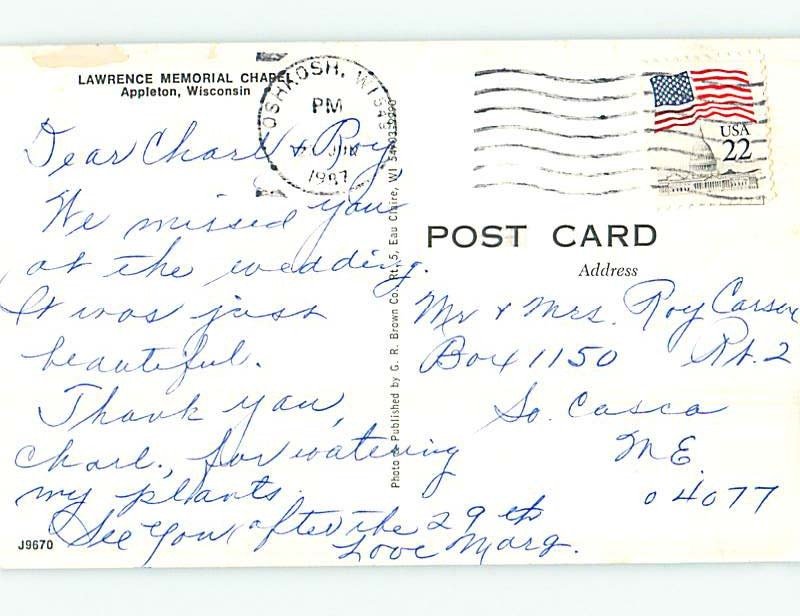 LAWRENCE MEMORIAL CHAPEL
Appleton, Wisconsin
OSHKOSH, WI 549
PM
1987
USA
22
Dear Charl & Roy,
We missed you
at the wedding.
It was just
beautiful.
Thank you,
Charl., for watering
my plants.
See you after the 29th
Love Marg.
J9670
Photo & Published by G. R. Brown Co., Rt. 5, Eau Claire, WI 54703
POST CARD
Address
Mr & Mrs. Roy Carson
Box 1150 Rt. 2
So. Casco
ME.
04077